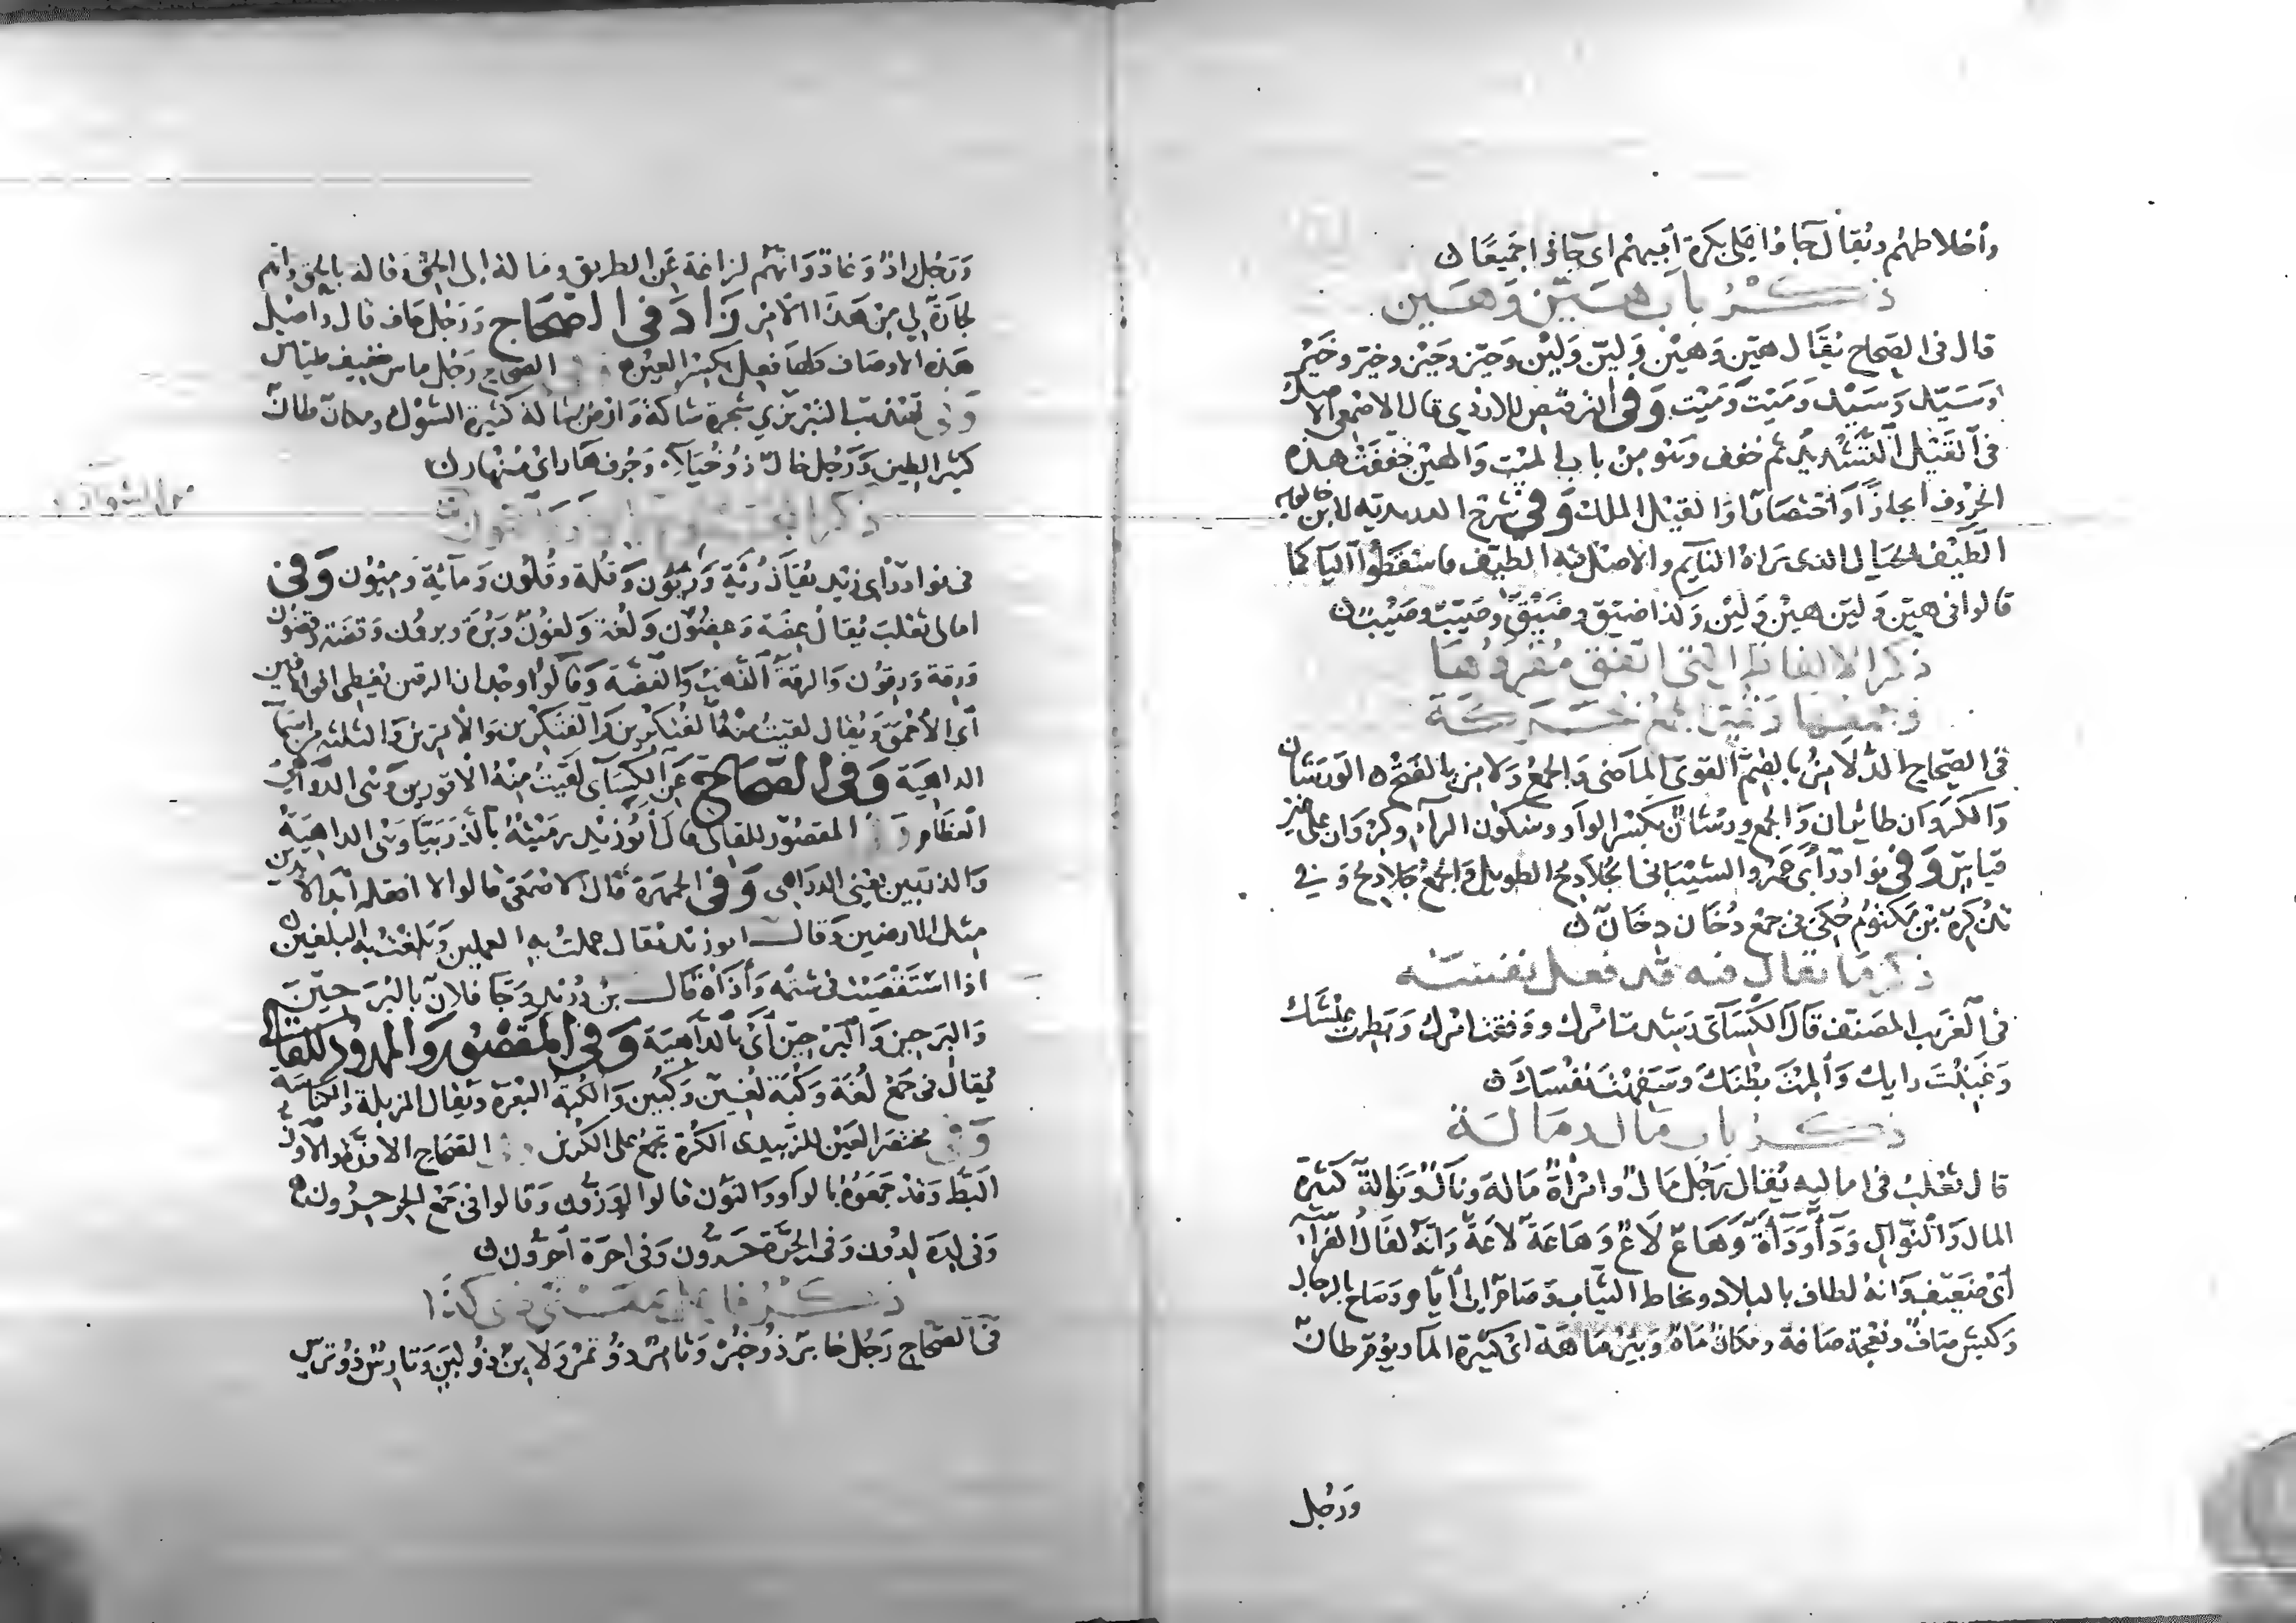 وأخلاطهم ويقال جاؤا على بكرة أبيهم اى جاؤا جميعا
ذكر باب هين وهين
قال فى الصحاح يقال هين وهين ولين ولين وحيز وحيز وخير وخير
وسيد وسيد وميت وميت وفى الترقيص للازدى قال الاصمعى الاصل
فى القيل التشديد ثم خفف وهو من باب الميت والهين خففت هذه
الحروف ايجازا واختصارا والقيل الملك وفى شرح الدريدية لابن خالويه
الطيف الخيال الذى يراه النايم والاصل فيه الطيف فاسقطوا اليا كما
قالوا فى هين ولين هين ولين وكذا ضيق وضيق وصيب وصيب
ذكر الالفاظ التى اتفق مفردها
وجمعها وغير الجمع بحركة
فى الصحاح الدلامز بالضم القوى الماضى والجمع دلامز بالفتح الورشان
والكروان طائران والجمع ورشان بكسر الواو وسكون الراء وكروان على غير
قياس وفى نوادر أبى عمرو الشيبانى الجلادح الطويل والجمع جلادح وفى
تذكرة بن مكتوم حكى فى جمع دخان دخان
ذكر ما يقال فيه قد فعل نفسه
فى الغريب المصنف قال الكسائى رشدت امرك ووفقت امرك وبطرت عيشك
وغبنت رايك وألمت بطنك وسفهت نفسك
ذكر باب مال ومالة
قال ثعلب فى اماليه يقال رجل مال وامرأة مالة ونال ونالة كثيرة
المال والنوال وداء وداءة وهاع لاع وهاعة لاعة وانه لفال الفراسة
أى ضعيف وانه لطاف بالبلاد وخاط الثياب وصام الى أيام وصاح بالرجال
وكبش صاف ونعجة صافة ومكان ماه وبئر ماهة اى كثيرة الماء ويوم طان
ورجل
ورجل راد وغاد وانهم لزاغة عن الطريق ومالة الى الحق وقالة بالحق وانهم
لجارة لى من هذا الامر زاد فى الصحاح ورجل خاف قال واصل
هذه الاوصاف كلها فعل بكسر العين وفى الصحاح رجل ماس خفيف طياش
وفى تهذيب التبريزى شجرة شاكة وارض شاكة كثيرة الشوك ومكان طان
كثير الطين ورجل خال ذو خيلاء وجرف هار اى منهار
فى نوادر أبى زيد يقال رثة ورثون وقلة وقلون ومائة ومئون وفى
امالى ثعلب يقال عضة وعضون ولغة ولغون وبرة وبرون وقضة وقضون
ورقة ورقون والرقة الذهب والفضة وقالوا وجدان الرقين يغطى افن الافين
أى الاحمق ويقال لقيت منه الفتكرين والفتكرين والامرين والثلثة من اسماء
الداهية وفى الصحاح عن الكسائى لقيت منه الاقورين وهى الدواهى
العظام وفى المقصور للقالى قال أبو زيد رميته بالذربيا وهى الداهية
والذربين يعنى الدواهى وفى الجمهرة قال الاصمعى قالوا لا افعله أبد الابدين
مثل الارضين وقال ابو زيد يقال عملت به العملين وبلغت به البلغين
اذا استقصيت فى شتمه وأذاه قال بن دريد وجا فلان بالبرحين
والبرحين والبرحين أى بالداهية وفى المقصور والممدود للقالى
يقال فى جمع لغة وكبة لغين وكبين والكبة البعرة ويقال المزبلة والكناسة
وفى مختصر العين للزبيدى الكرة تجمع على الكرين وفى الصحاح الاوزة والاوز
البط وقد جمعوه بالواو والنون قالوا اوزون وقالوا فى جمع الحر حرون
وفى لدة لدون وفى الحرة حرون وفى احرة احرون
ذكر فاعل بمعنى ذى كذا
فى الصحاح رجل خابز ذو خبز وتامر ذو تمر ولابن ذو لبن وتارس ذو ترس